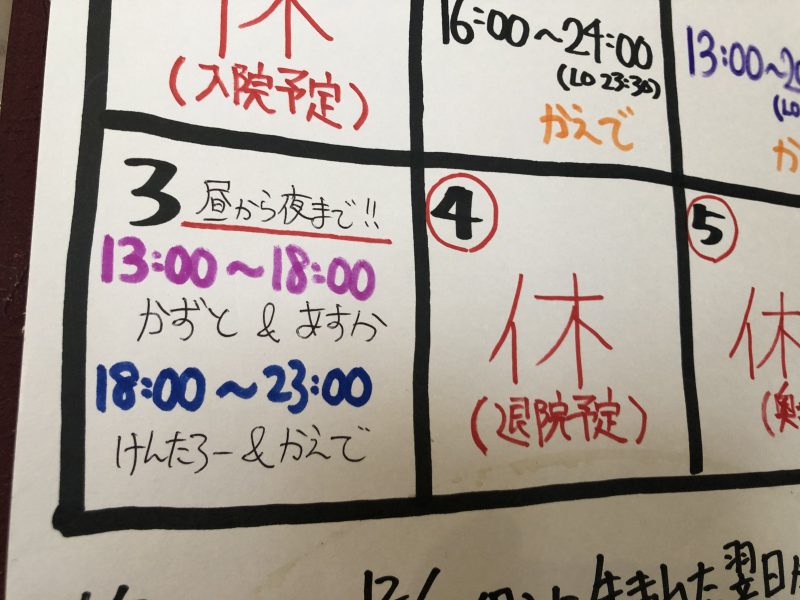 休
(入院予定)
16:00～24:00
(LO 23:30)
かえで
13:00～
3 昼から夜まで!!
13:00～18:00
かずと & あすか
18:00～23:00
けんたろー & かえで
4
休
(退院予定)
5
休
生まれた翌日